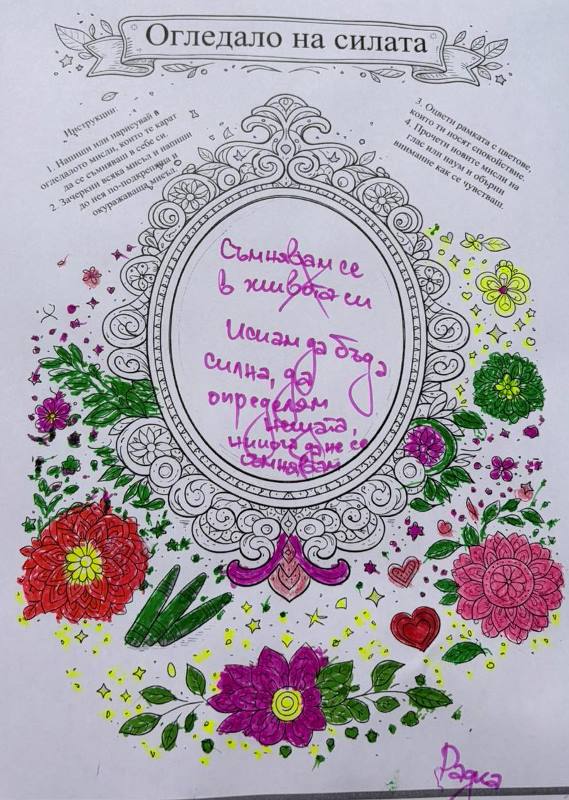 Огледало на силата
Инструкции:
1. Напиши или нарисувай в
огледалото мисли, които те карат
да се съмняваш в себе си.
2. Зачеркни всяка мисъл и напиши
до нея по-подкрепяща и
окуражаваща мисъл.
3. Оцвети рамката с цветове,
които ти носят спокойствие.
4. Прочети новите мисли на
глас или наум и обърни
внимание как се чувстваш.
Съмнявам се
в живота си
Искам да бъда
силна, да
определям
нещата,
никога да не се
съмнявам
Радка